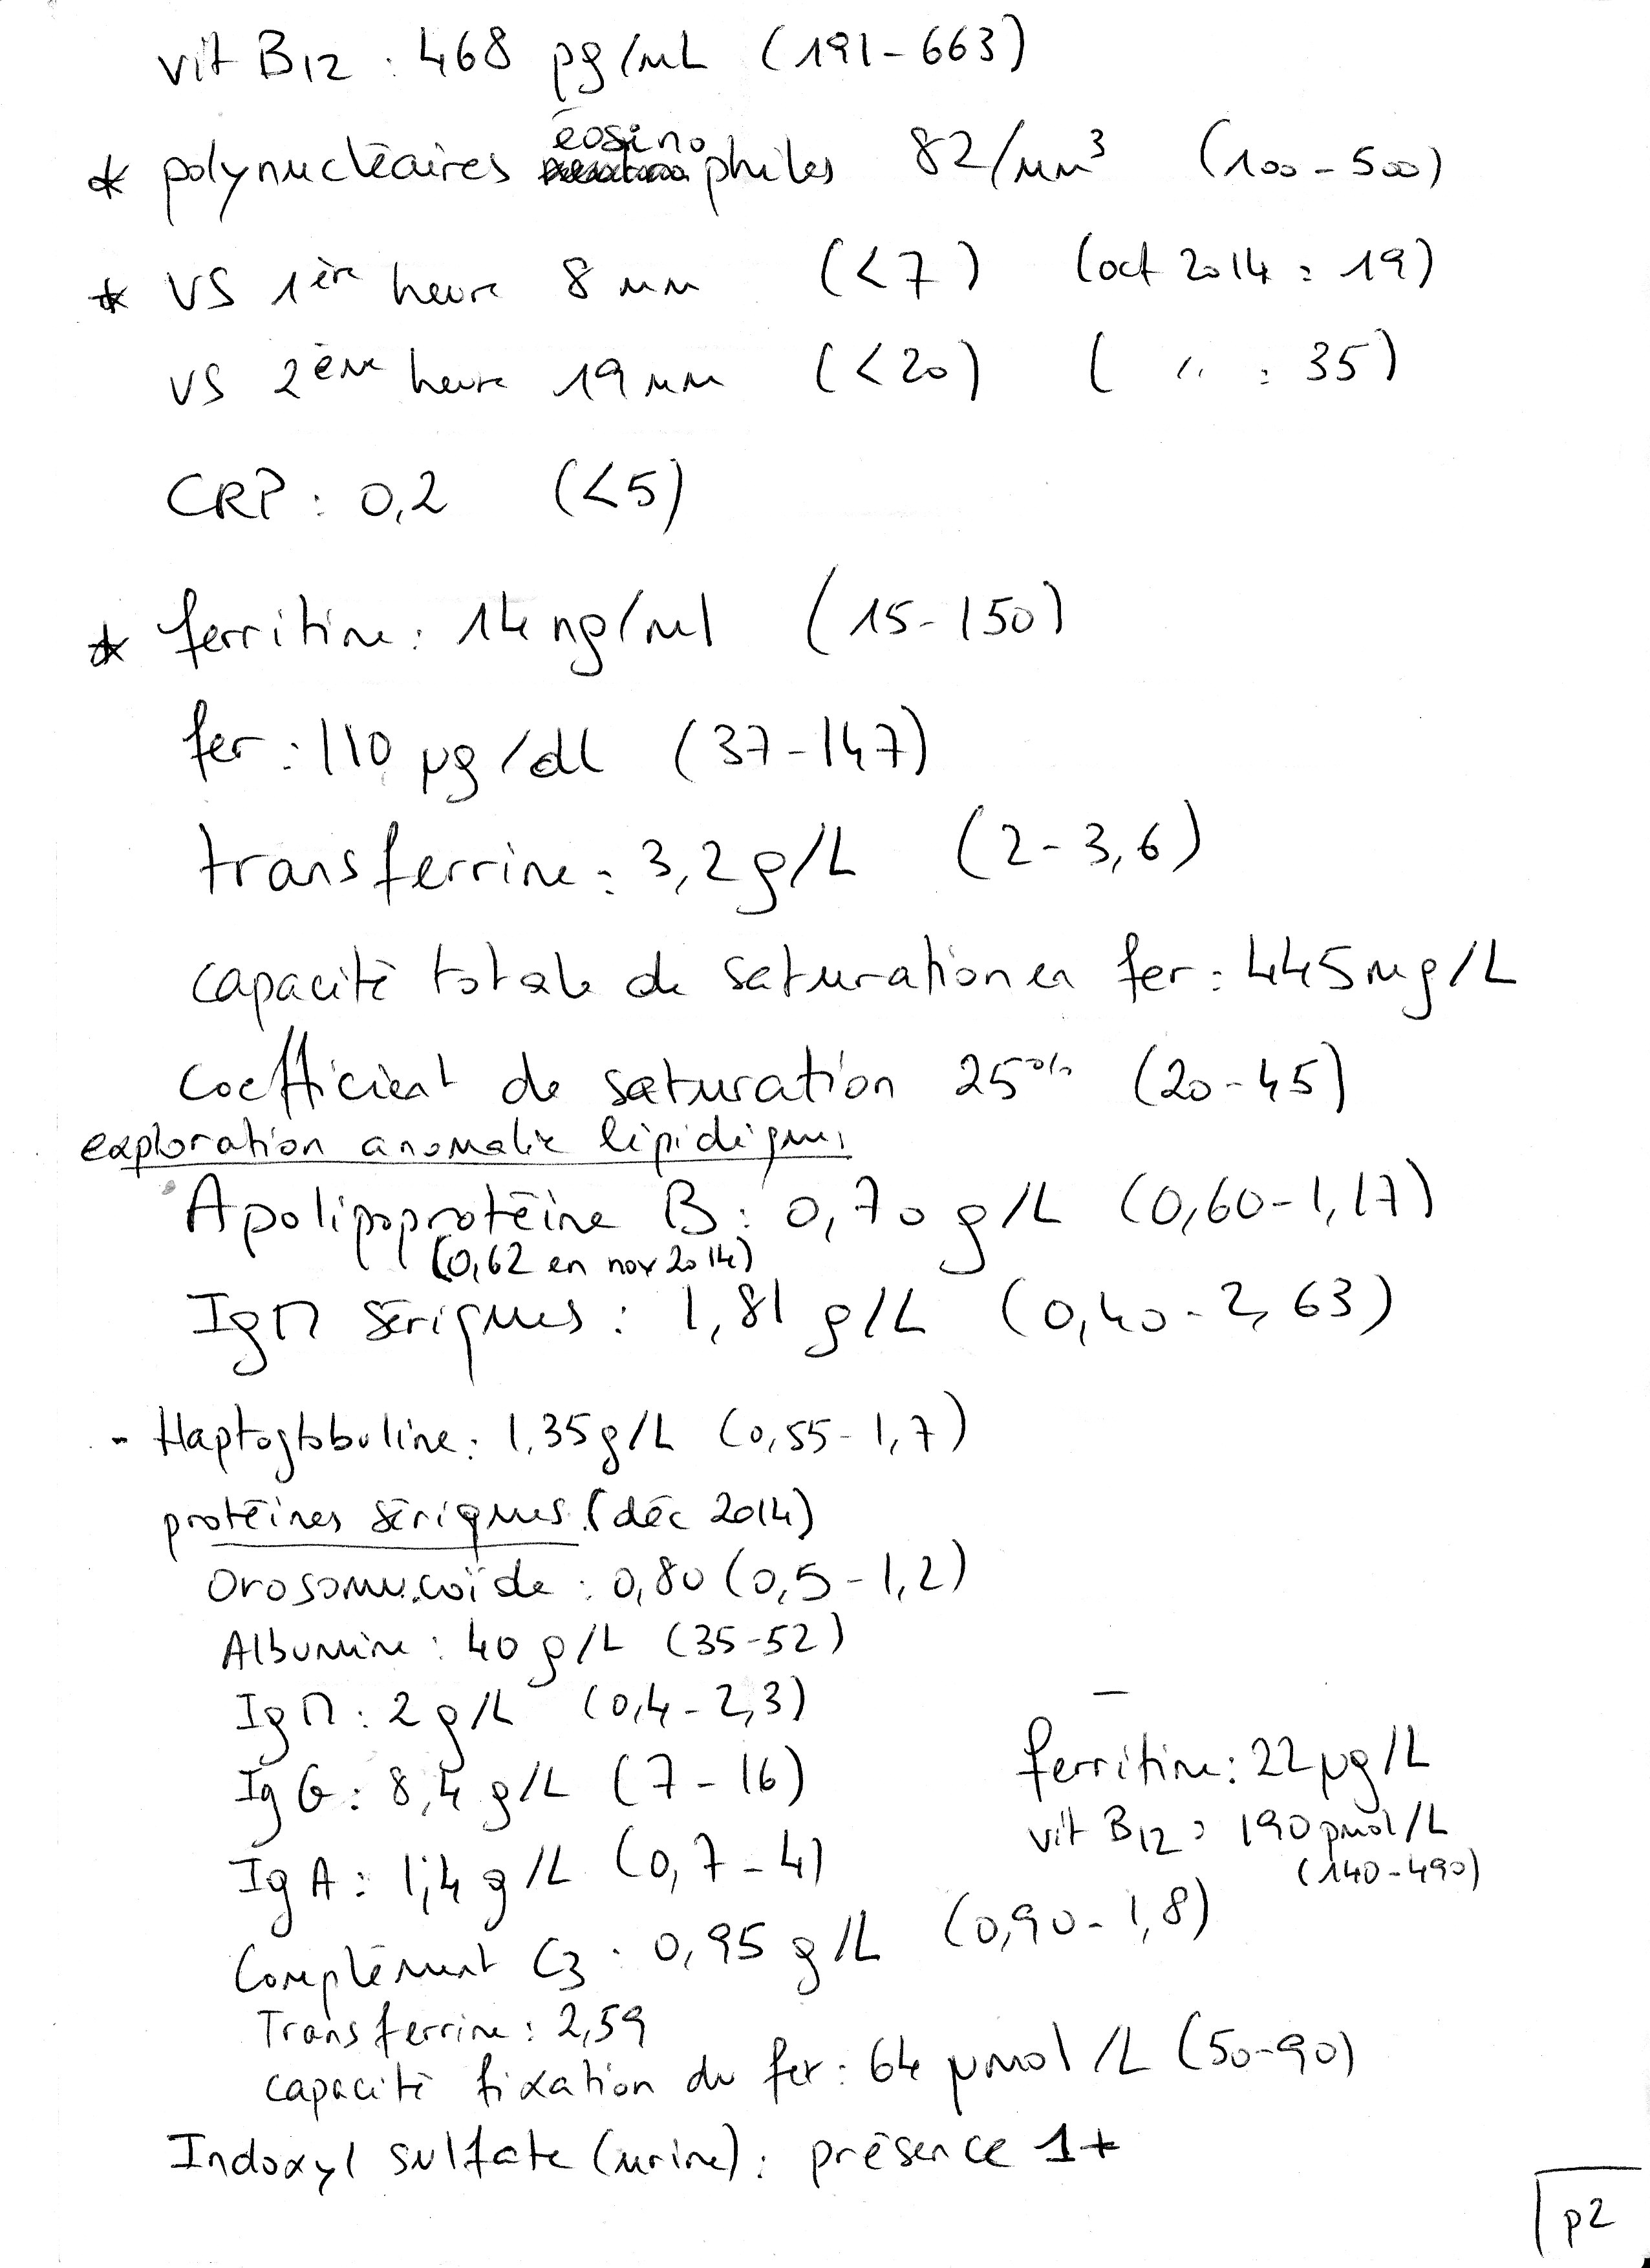 vit B12 : 468 pg/mL (191-663)
* polynucléaires éosinophiles 82/mm³ (100-500)
* VS 1ère heure 8 mm (<7) (oct 2014 : 19)
VS 2ème heure 19 mm (<20) ( " : 35)
CRP : 0,2 (<5)
* ferritine : 14 ng/ml (15-150)
fer : 110 µg/dl (37-147)
transferrine : 3,2 g/L (2-3,6)
capacité totale de saturation en fer : 445 mg/L
Coefficient de saturation 25% (20-45)
exploration anomalie lipidique
Apolipoprotéine B : 0,70 g/L (0,60-1,17)
(0,62 en nov 2014)
IgM sériques : 1,81 g/L (0,40-2,63)
- Haptoglobuline : 1,35 g/L (0,55-1,7)
protéines sériques (déc 2014)
Orosomucoïde : 0,80 (0,5-1,2)
Albumine : 40 g/L (35-52)
IgM : 2 g/L (0,4-2,3)
IgG : 8,4 g/L (7-16)
IgA : 1,4 g/L (0,7-4)
Complément C3 : 0,95 g/L (0,90-1,8)
Transferrine : 2,59
capacité fixation du fer : 64 µmol/L (50-90)
Indoxyl sulfate (urine) : présence 1+
ferritine : 22 µg/L
vit B12 : 190 pmol/L
(140-490)
p2